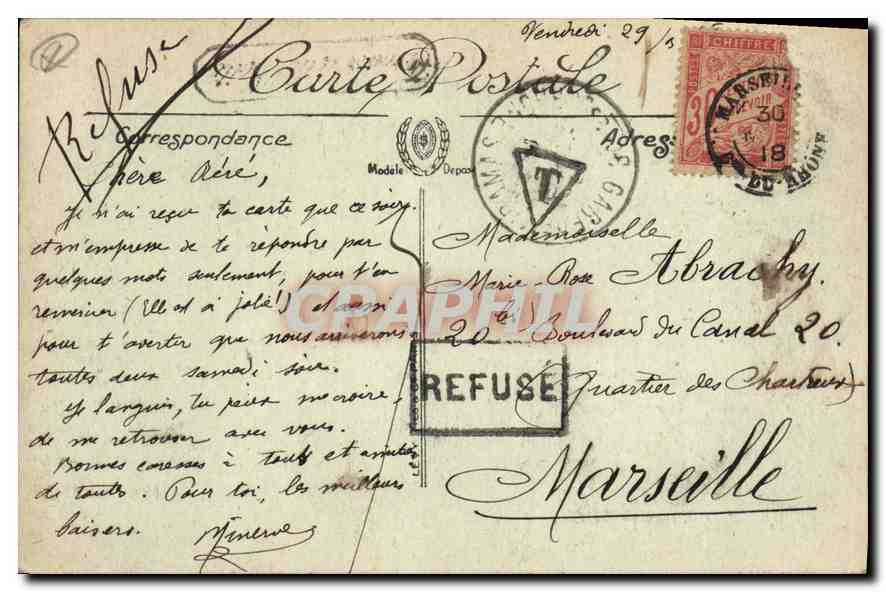 Vendredi 29
Refusé
Carte Postale
CHIFFRE
POSTES
30
MARSEILLE
30
18
DU-RHÔNE
Correspondance
Adresse
Modèle Déposé
MIRAMAS GARE
T
Chère Aéré,
Je n'ai reçu ta carte que ce soir
et m'empresse de te répondre par
quelques mots seulement, pour t'en
remercier (Elle est si jolie!) et aussi
pour t'avertir que nous arriverons
toutes deux samedi soir.
Je languis, tu peux me croire,
de me retrouver avec vous.
Bonnes caresses à tous et amitiés
de toutes. Pour toi, les meilleurs
baisers. Minerve
Mademoiselle
Marie-Rose Abrachy.
20 bis Boulevard du Canal 20.
(Quartier des Chartreux)
Marseille
REFUSÉ
CPAPHIL